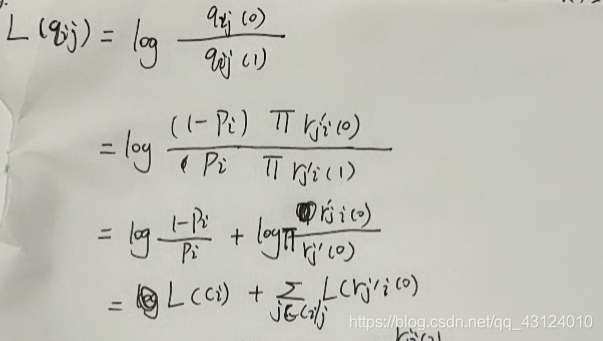 L(qij) = log qij(0) / qij(1)
= log (1-Pi) π rj'i(0) / Pi π rj'i(1)
= log 1-Pi / Pi + log π rj'i(0) / rj'(0)
= L(ci) + Σ j∈Ci/j L(rj'i(0)
https://blog.csdn.net/qq_43124010